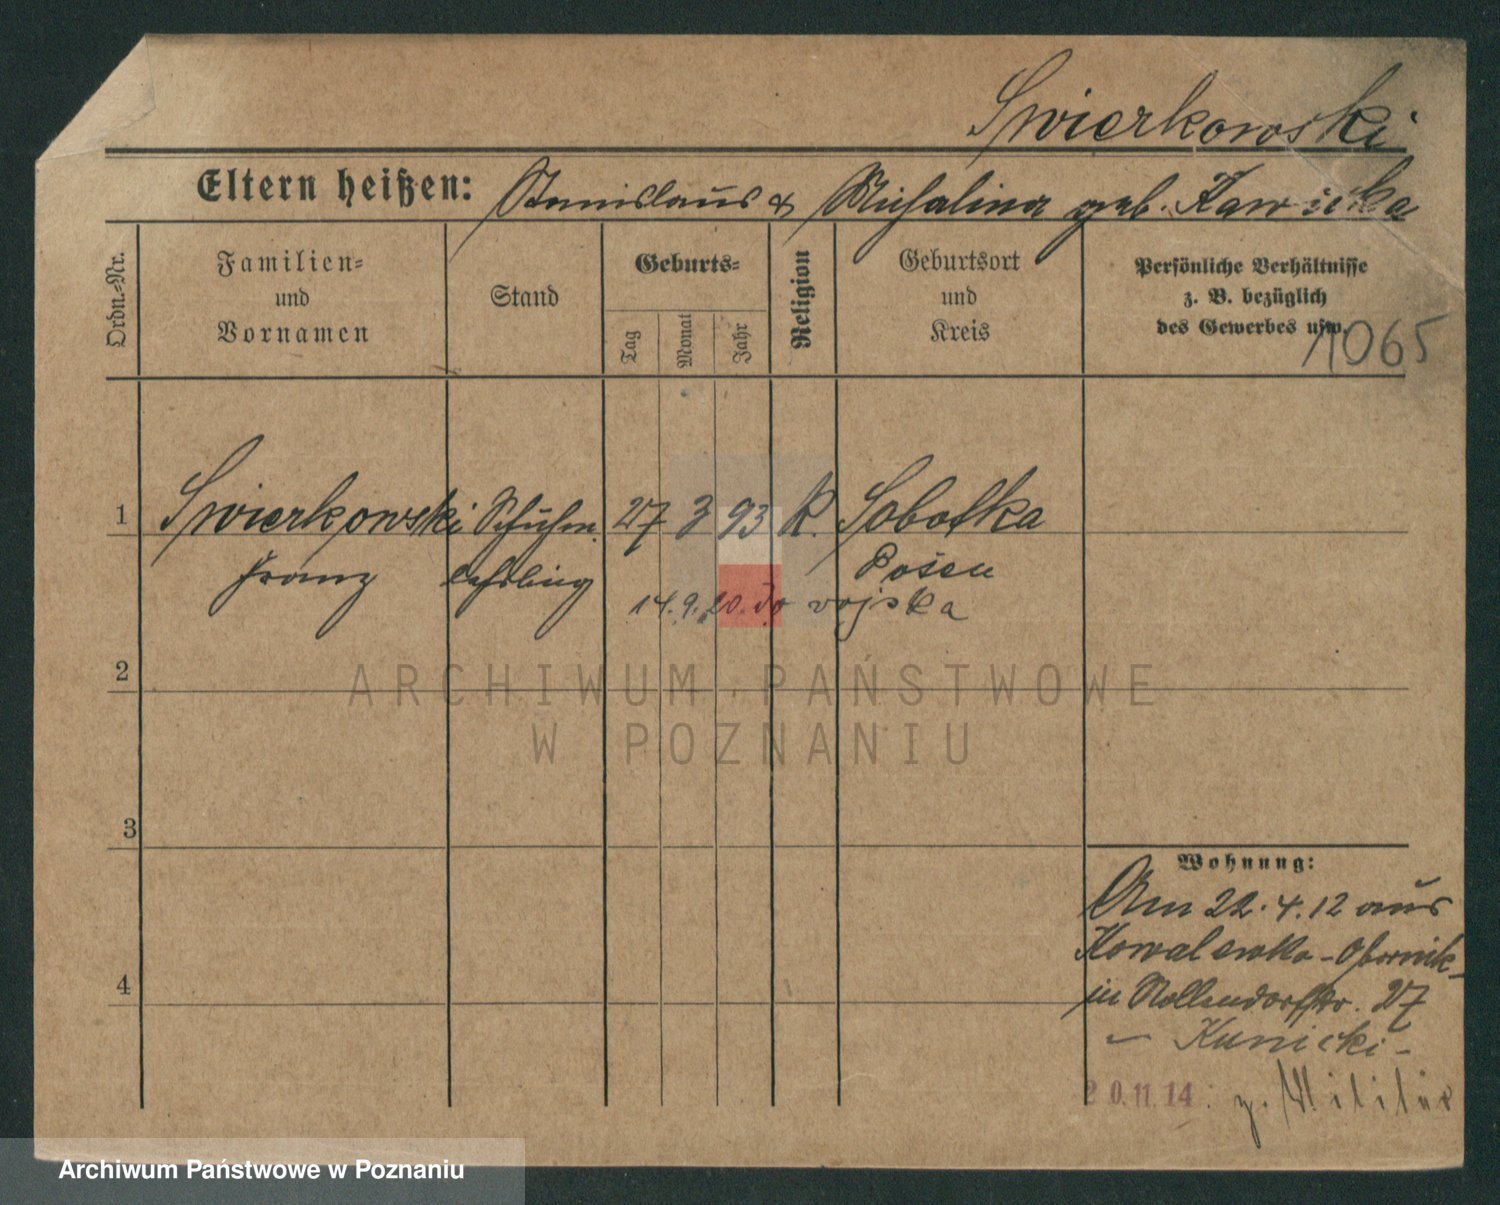 Swierkowski
Eltern heißen: Stanislaus & Michalina geb. Kawicka
Ordn.-Nr.
Familien-
und
Vornamen
Stand
Geburts-
Tag
Monat
Jahr
Religion
Geburtsort
und
Kreis
Persönliche Verhältnisse
z. B. bezüglich
des Gewerbes usw.
1065
1 Swierkowski Schuhm. 27 3 93 K. Sobotka
Franz lehrling Posen
14.9.20. do wojska
2
3
4
Wohnung:
Am 22.4.12 aus
Kowalewko-Obornik
in Nollendorfstr. 27
- Kunicki -
20.11.14. z. Militär
ARCHIWUM PAŃSTWOWE
W POZNANIU
Archiwum Państwowe w Poznaniu